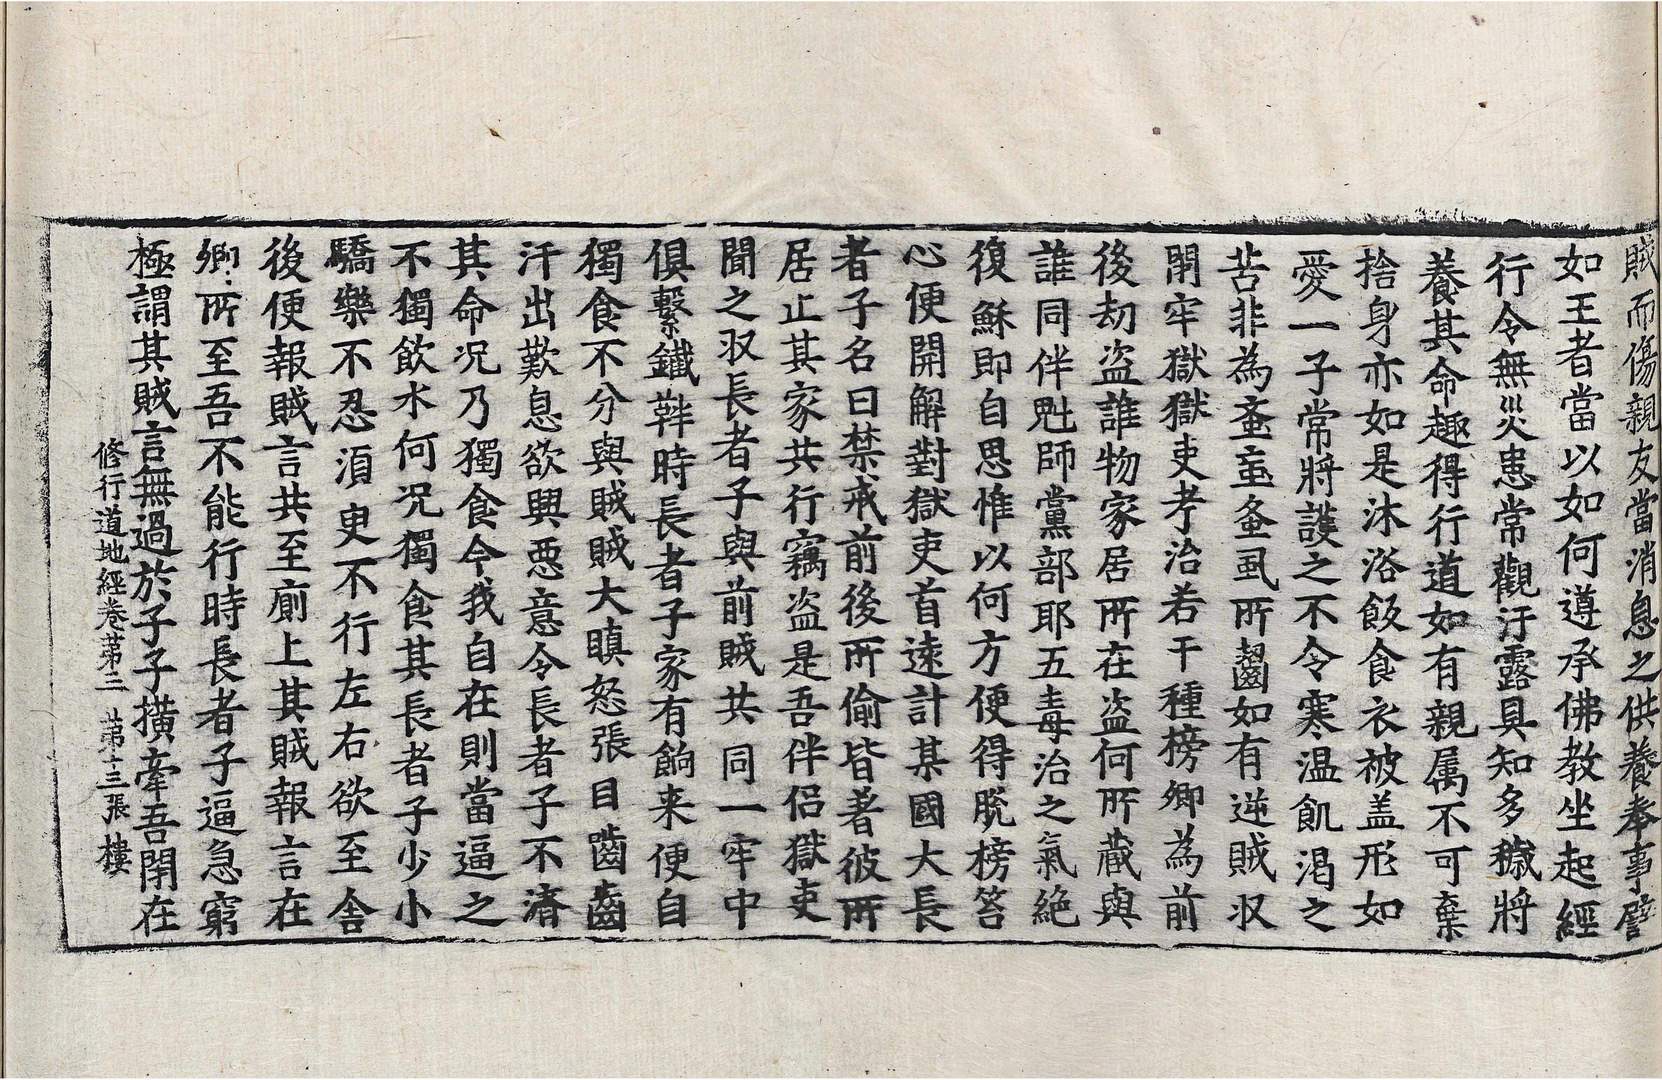 賊而傷親友當消息之供養奉事譬
如王者當以如何遵承佛教坐起經
行令無災患常觀汙露具知多穢將
養其命趣得行道如有親属不可棄
捨身亦如是沐浴飯食衣被盖形如
愛一子常將護之不令寒温飢渴之
苦非為蚉䖟蚤虱所齧如有逆賊収
閉牢獄獄吏考治若干種榜卿為前
後劫盗誰物家居所在盗何所藏與
誰同伴䰢師黨部耶五毒治之氣絶
復穌即自思惟以何方便得脫榜笞
心便開解對獄吏首遠計某國大長
者子名曰禁戒前後所偷皆著彼所
居止其家共行竊盗是吾伴侶獄吏
聞之収長者子與前賊共同一牢中
俱繫鐵靽時長者子家有餉来便自
獨食不分與賊賊大瞋怒張目齒齒
汗出歎息欲興惡意令長者子不濟
其命况乃獨食今我自在則當逼之
不獨飲水何况獨食其長者子少小
驕樂不忍湏臾不行左右欲至舎
後便報賊言共至廁上其賊報言在
卿所至吾不能行時長者子逼急窮
極謂其賊言無過於子子横牽吾閉在
修行道地經卷苐二　苐十三張　樓